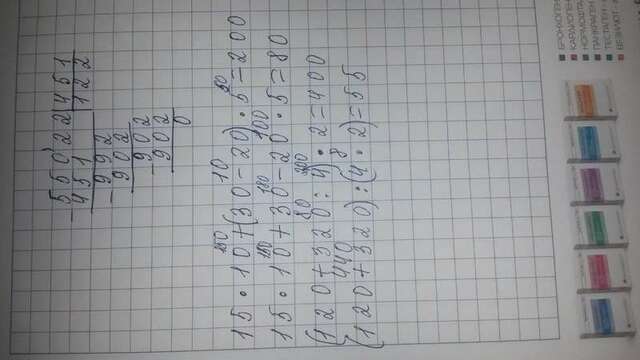 55022 451
451 122
992
902
902
902
0
150 10 50
15 · 10 + (30 - 20) · 5 = 200
150 180 100
15 · 10 + 30 - 20 · 5 = 80
80 200
(120 + 320 : 4) · 2 = 400
440 8
(120 + 320) : (4 · 2) = 55
БРОНХОГЕН
КАРДИОГЕН
НОРМОФТА
ПАНКРАГЕН
ТЕСТАЛЕН
ВЕЗИЛЮТ